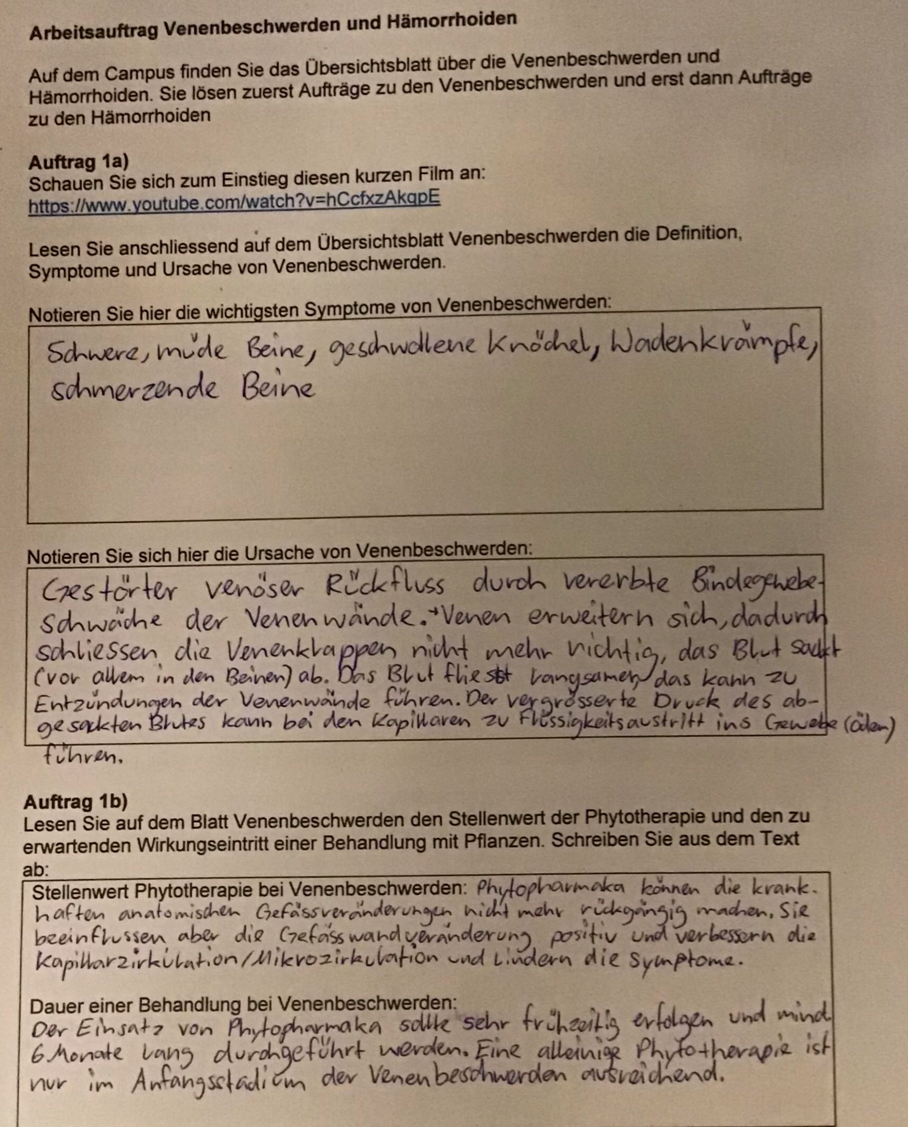 Arbeitsauftrag Venenbeschwerden und Hämorrhoiden
Auf dem Campus finden Sie das Übersichtsblatt über die Venenbeschwerden und
Hämorrhoiden. Sie lösen zuerst Aufträge zu den Venenbeschwerden und erst dann Aufträge
zu den Hämorrhoiden
Auftrag 1a)
Schauen Sie sich zum Einstieg diesen kurzen Film an:
https://www.youtube.com/watch?v=hCcfxzAkqpE
Lesen Sie anschliessend auf dem Übersichtsblatt Venenbeschwerden die Definition,
Symptome und Ursache von Venenbeschwerden.
Notieren Sie hier die wichtigsten Symptome von Venenbeschwerden:
Schwere, müde Beine, geschwollene Knöchel, Wadenkrämpfe,
schmerzende Beine
Notieren Sie sich hier die Ursache von Venenbeschwerden:
Gestörter venöser Rückfluss durch vererbte Bindegewebe-
schwäche der Venenwände. → Venen erweitern sich, dadurch
schliessen die Venenklappen nicht mehr richtig, das Blut sackt
(vor allem in den Beinen) ab. Das Blut fliesst langsamer, das kann zu
Entzündungen der Venenwände führen. Der vergrösserte Druck des ab-
gesackten Blutes kann bei den Kapillaren zu Flüssigkeitsaustritt ins Gewebe (Ödem)
führen.
Auftrag 1b)
Lesen Sie auf dem Blatt Venenbeschwerden den Stellenwert der Phytotherapie und den zu
erwartenden Wirkungseintritt einer Behandlung mit Pflanzen. Schreiben Sie aus dem Text
ab:
Stellenwert Phytotherapie bei Venenbeschwerden: Phytopharmaka können die krank-
haften anatomischen Gefässveränderungen nicht mehr rückgängig machen. Sie
beeinflussen aber die Gefässwandveränderung positiv und verbessern die
Kapillarzirkulation/Mikrozirkulation und lindern die Symptome.
Dauer einer Behandlung bei Venenbeschwerden:
Der Einsatz von Phytopharmaka sollte sehr frühzeitig erfolgen und mind.
6 Monate lang durchgeführt werden. Eine alleinige Phytotherapie ist
nur im Anfangsstadium der Venenbeschwerden ausreichend.